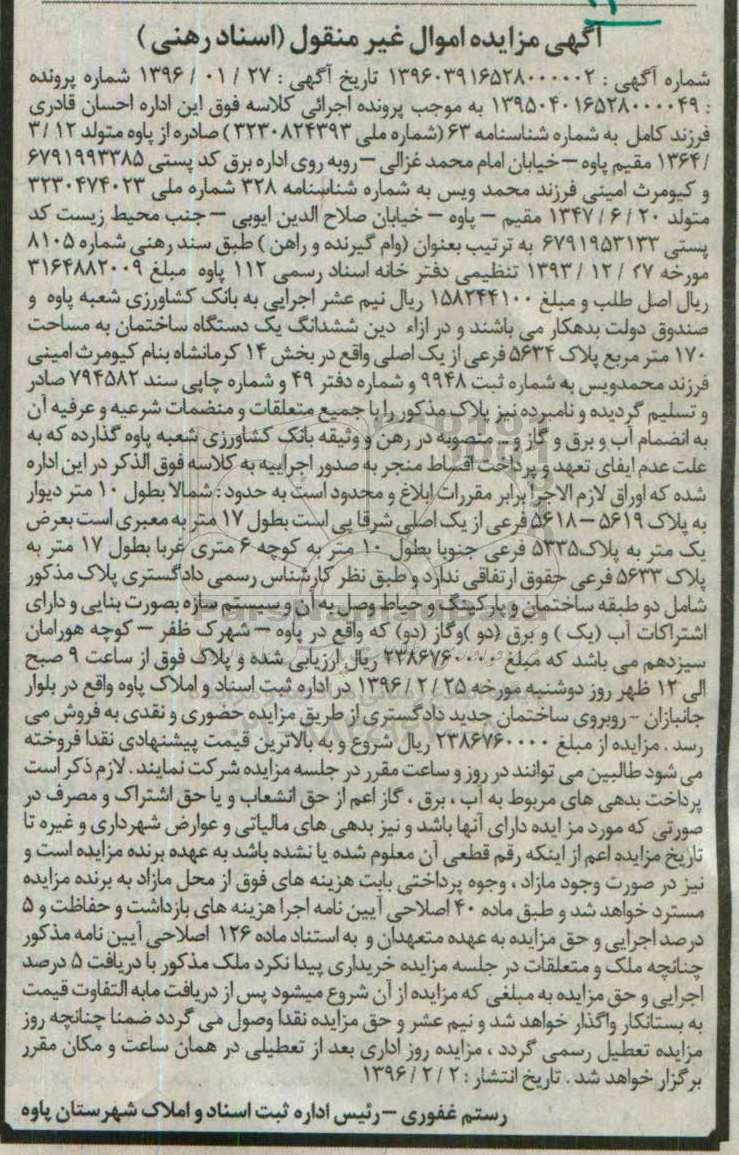 آگهی مزایده اموال غیر منقول (اسناد رهنی)
شماره آگهی : ۱۳۹۶۰۳۹۱۶۵۲۸۰۰۰۰۰۲ تاریخ آگهی : ۲۷ / ۰۱ / ۱۳۹۶ شماره پرونده
: ۱۳۹۵۰۴۰۱۶۵۲۸۰۰۰۰۴۹ به موجب پرونده اجرائی کلاسه فوق این اداره احسان قادری
فرزند کامل به شماره شناسنامه ۶۳ (شماره ملی ۳۲۳۰۸۲۴۳۹۳) صادره از پاوه متولد ۱۲ / ۳
/ ۱۳۶۴ مقیم پاوه – خیابان امام محمد غزالی – روبه روی اداره برق کد پستی ۶۷۹۱۹۹۳۳۸۵
و کیومرث امینی فرزند محمد ویس به شماره شناسنامه ۳۲۸ شماره ملی ۳۲۳۰۴۷۴۰۲۳
متولد ۲۰ / ۶ / ۱۳۴۷ مقیم – پاوه – خیابان صلاح الدین ایوبی – جنب محیط زیست کد
پستی ۶۷۹۱۹۵۳۱۳۳ به ترتیب بعنوان (وام گیرنده و راهن) طبق سند رهنی شماره ۸۱۰۵
مورخه ۲۷ / ۱۲ / ۱۳۹۳ تنظیمی دفتر خانه اسناد رسمی ۱۱۲ پاوه مبلغ ۳۱۶۴۸۸۲۰۰۹
ریال اصل طلب و مبلغ ۱۵۸۲۴۴۱۰۰ ریال نیم عشر اجرایی به بانک کشاورزی شعبه پاوه و
صندوق دولت بدهکار می باشند و در ازاء دین ششدانگ یک دستگاه ساختمان به مساحت
۱۷۰ متر مربع پلاک ۵۶۳۴ فرعی از یک اصلی واقع در بخش ۱۴ کرمانشاه بنام کیومرث امینی
فرزند محمدویس به شماره ثبت ۹۹۴۸ و شماره دفتر ۴۹ و شماره چاپی سند ۷۹۴۵۸۲ صادر
و تسلیم گردیده و نامبرده نیز پلاک مذکور را با جمیع متعلقات و منضمات شرعیه و عرفیه آن
به انضمام آب و برق و گاز و... منصوبه در رهن و وثیقه بانک کشاورزی شعبه پاوه گذارده که به
علت عدم ایفای تعهد و پرداخت اقساط منجر به صدور اجراییه به کلاسه فوق الذکر در این اداره
شده که اوراق لازم الاجرا برابر مقررات ابلاغ و محدود است به حدود : شمالا بطول ۱۰ متر دیوار
به پلاک ۵۶۱۹ – ۵۶۱۸ فرعی از یک اصلی شرقا پی است بطول ۱۷ متر به معبری است بعرض
یک متر به پلاک۵۳۳۵ فرعی جنوبا بطول ۱۰ متر به کوچه ۶ متری غربا بطول ۱۷ متر به
پلاک ۵۶۳۳ فرعی حقوق ارتفاقی ندارد و طبق نظر کارشناس رسمی دادگستری پلاک مذکور
شامل دو طبقه ساختمان و پارکینگ و حیاط وصل به آن و سیستم سازه بصورت بنایی و دارای
اشتراکات آب (یک) و برق (دو )وگاز (دو) که واقع در پاوه – شهرک ظفر – کوچه هورامان
سیزدهم می باشد که مبلغ ۲۳۸۶۷۶۰۰۰۰ ریال ارزیابی شده و پلاک فوق از ساعت ۹ صبح
الی ۱۲ ظهر روز دوشنبه مورخه ۲۵ / ۲ / ۱۳۹۶ در اداره ثبت اسناد و املاک پاوه واقع در بلوار
جانبازان - روبروی ساختمان جدید دادگستری از طریق مزایده حضوری و نقدی به فروش می
رسد . مزایده از مبلغ ۲۳۸۶۷۶۰۰۰۰ ریال شروع و به بالاترین قیمت پیشنهادی نقدا فروخته
می شود طالبین می توانند در روز و ساعت مقرر در جلسه مزایده شرکت نمایند . لازم ذکر است
پرداخت بدهی های مربوط به آب ، برق ، گاز اعم از حق انشعاب و یا حق اشتراک و مصرف در
صورتی که مورد مز ایده دارای آنها باشد و نیز بدهی های مالیاتی و عوارض شهرداری و غیره تا
تاریخ مزایده اعم از اینکه رقم قطعی آن معلوم شده یا نشده باشد به عهده برنده مزایده است و
نیز در صورت وجود مازاد ، وجوه پرداختی بابت هزینه های فوق از محل مازاد به برنده مزایده
مسترد خواهد شد و طبق ماده ۴۰ اصلاحی آیین نامه اجرا هزینه های بازداشت و حفاظت و ۵
درصد اجرایی و حق مزایده به عهده متعهدان و به استناد ماده ۱۲۶ اصلاحی آیین نامه مذکور
چنانچه ملک و متعلقات در جلسه مزایده خریداری پیدا نکرد ملک مذکور با دریافت ۵ درصد
اجرایی و حق مزایده به مبلغی که مزایده از آن شروع میشود پس از دریافت مابه التفاوت قیمت
به بستانکار واگذار خواهد شد و نیم عشر و حق مزایده نقدا وصول می گردد ضمنا چنانچه روز
مزایده تعطیل رسمی گردد ، مزایده روز اداری بعد از تعطیلی در همان ساعت و مکان مقرر
برگزار خواهد شد . تاریخ انتشار : ۲ / ۲ / ۱۳۹۶
رستم غفوری – رئیس اداره ثبت اسناد و املاک شهرستان پاوه